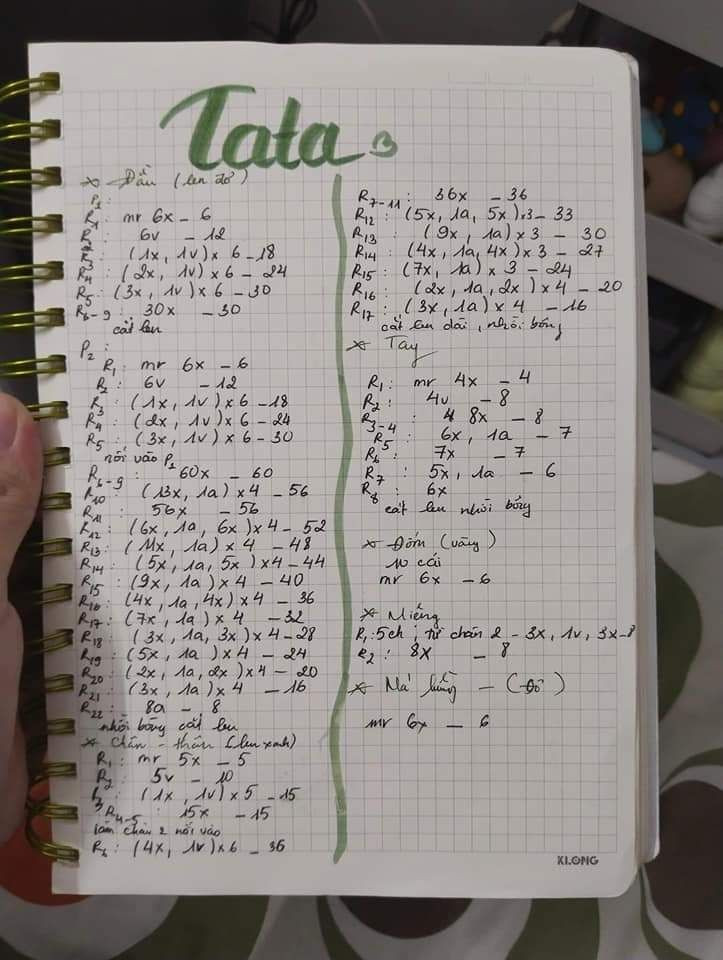 Tata
* Đầu (len đỏ)
P1:
R1: mr 6x - 6
R2: 6v - 12
R3: (1x, 1v) x 6 - 18
R4: (2x, 1v) x 6 - 24
R5: (3x, 1v) x 6 - 30
R6-9: 30x - 30
cắt len
P2:
R1: mr 6x - 6
R2: 6v - 12
R3: (1x, 1v) x 6 - 18
R4: (2x, 1v) x 6 - 24
R5: (3x, 1v) x 6 - 30
nối vào P1
R6-9: 60x - 60
R10: (13x, 1a) x 4 - 56
R11: 56x - 56
R12: (6x, 1a, 6x) x 4 - 52
R13: (11x, 1a) x 4 - 48
R14: (5x, 1a, 5x) x 4 - 44
R15: (9x, 1a) x 4 - 40
R16: (4x, 1a, 4x) x 4 - 36
R17: (7x, 1a) x 4 - 32
R18: (3x, 1a, 3x) x 4 - 28
R19: (5x, 1a) x 4 - 24
R20: (2x, 1a, 2x) x 4 - 20
R21: (3x, 1a) x 4 - 16
R22: 8a - 8
nhồi bông cắt len
* Chân - thân (len xanh)
R1: mr 5x - 5
R2: 5v - 10
R3: (1x, 1v) x 5 - 15
R4-5: 15x - 15
làm chân 2 nối vào
R6: (4x, 1v) x 6 - 36
R7-11: 36x - 36
R12: (5x, 1a, 5x) x 3 - 33
R13: (9x, 1a) x 3 - 30
R14: (4x, 1a, 4x) x 3 - 27
R15: (7x, 1a) x 3 - 24
R16: (2x, 1a, 2x) x 4 - 20
R17: (3x, 1a) x 4 - 16
cắt len dài, nhồi bông
* Tay
R1: mr 4x - 4
R2: 4v - 8
R3-4: 8x - 8
R5: 6x, 1a - 7
R6: 7x - 7
R7: 5x, 1a - 6
R8: 6x
cắt len nhồi bông
* Đốm (vàng)
10 cái
mr 6x - 6
* Miếng
R1: 5ch, từ chân 2 - 3x, 1v, 3x - 8
R2: 8x - 8
* Má hồng - (đỏ)
mr 6x - 6
KLONG